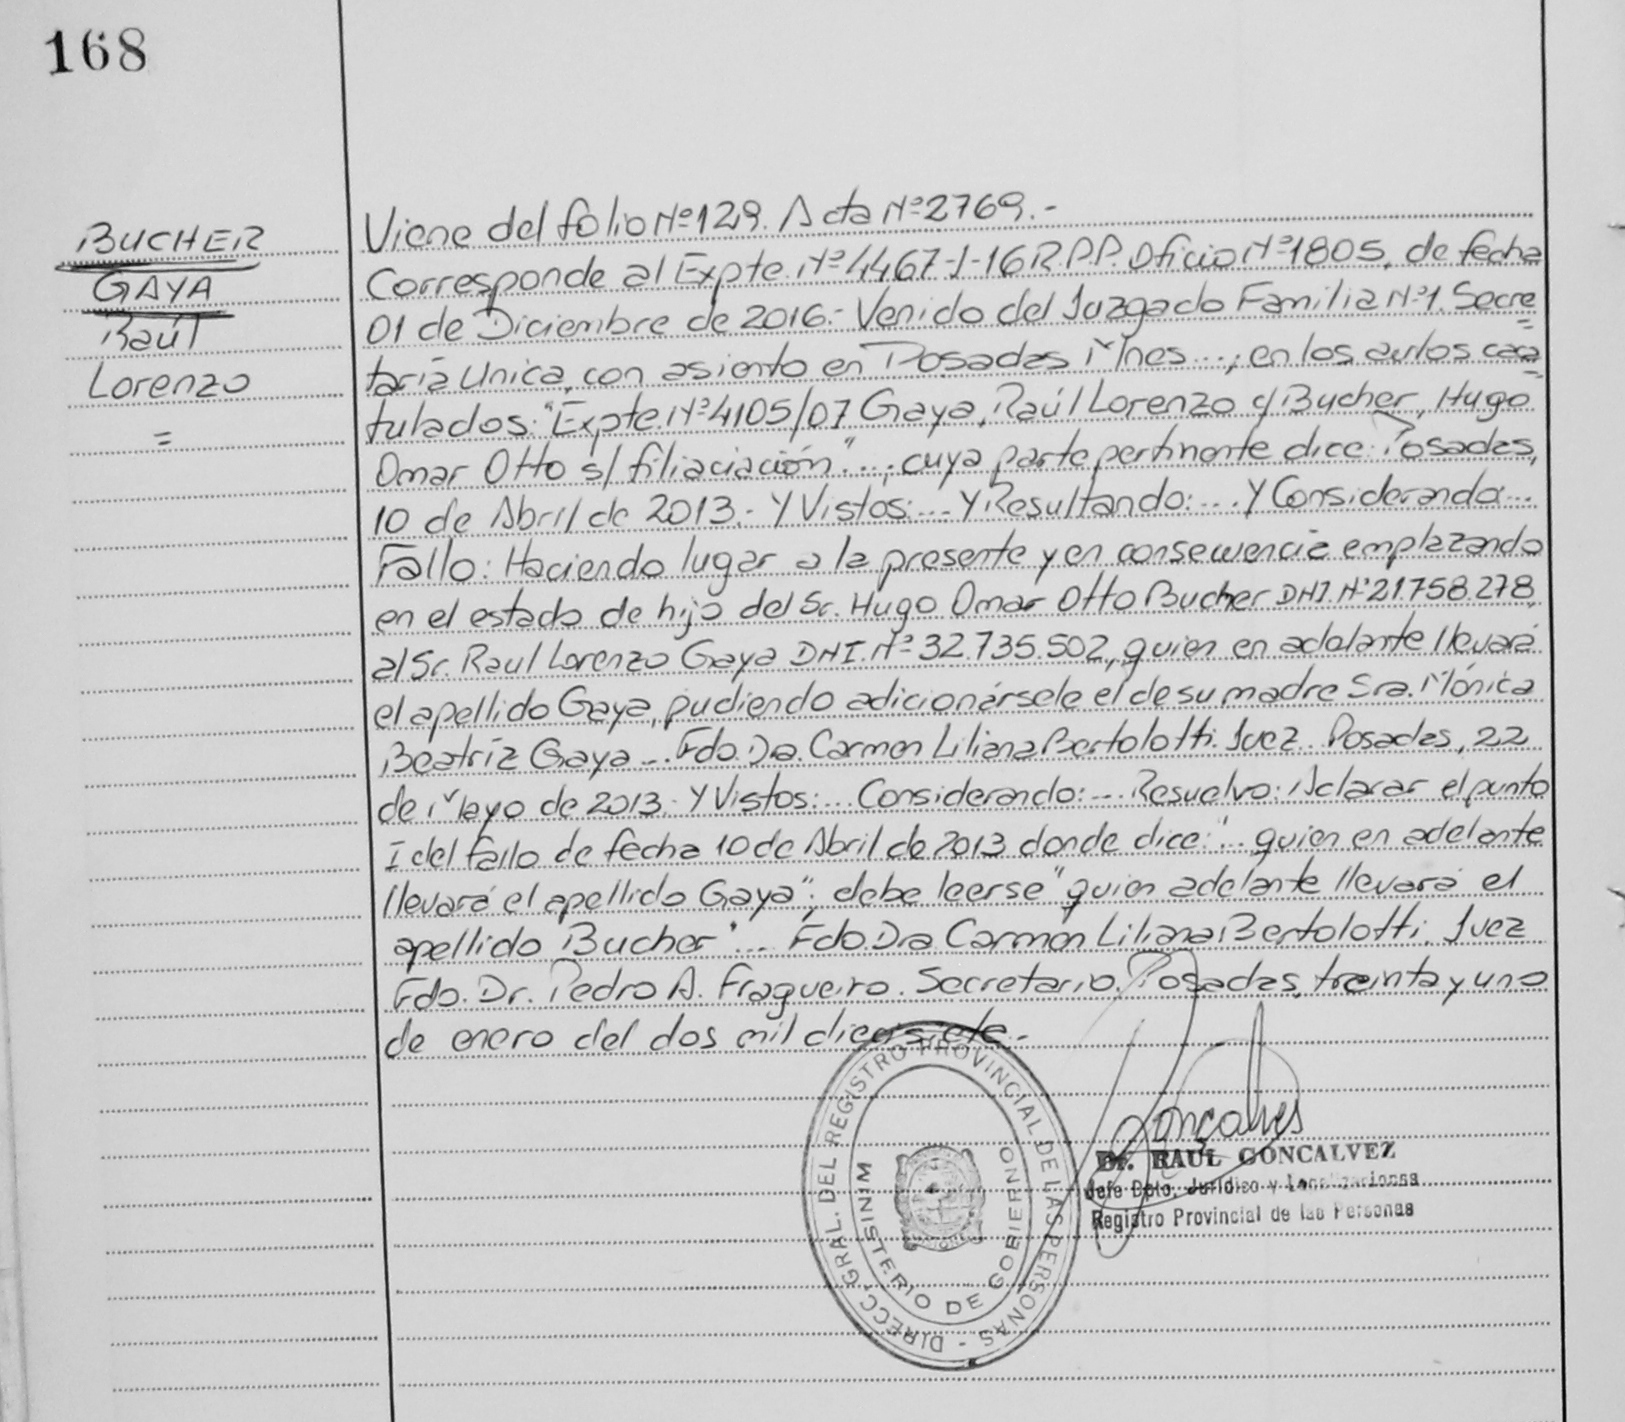 168
BUCHER
GAYA
Raúl
Lorenzo
=
Viene del folio Nº 129. Acta Nº 2769.-
Corresponde al Expte. Nº 4467-J-16 R.P.P. Oficio Nº 1805, de fecha
01 de Diciembre de 2016.- Venido del Juzgado Familia Nº 1. Secre=
taría Unica, con asiento en Posadas Mnes...; en los autos cara=
tulados: "Expte. Nº 4105/07 Gaya, Raúl Lorenzo c/ Bucher, Hugo
Omar Otto s/ filiaciación"..., cuya parte pertinente dice: Posadas,
10 de Abril de 2013.- Y Vistos:... Y Resultando:... Y Considerando:...
Fallo: Haciendo lugar a la presente y en consecuencia emplazando
en el estado de hijo del Sr. Hugo Omar Otto Bucher DNI. Nº 21.758.278,
al Sr. Raul Lorenzo Gaya DNI. Nº 32.735.502, quien en adelante llevará
el apellido Gaya, pudiendo adicionársele el de su madre Sra. Mónica
Beatríz Gaya... Fdo. Dra. Carmen Liliana Bertolotti. Juez. Posadas, 22
de Mayo de 2013.- Y Vistos:... Considerando:... Resuelvo: Aclarar el punto
I del fallo de fecha 10 de Abril de 2013 donde dice: "... quien en adelante
llevará el apellido Gaya"; debe leerse "quien adelante llevará el
apellido Bucher"... Fdo. Dra Carmen Liliana Bertolotti. Juez
Fdo. Dr. Pedro A. Fragueiro. Secretario. Posadas, treinta y uno
de enero del dos mil diecisiete.-
DIRECC. GRAL. DEL REGISTRO PROVINCIAL DE LAS PERSONAS -
MINISTERIO DE GOBIERNO
Gonçalves
Dr. RAUL GONCALVEZ
Jefe Dpto. Jurídico y Legalizaciones
Registro Provincial de las Personas